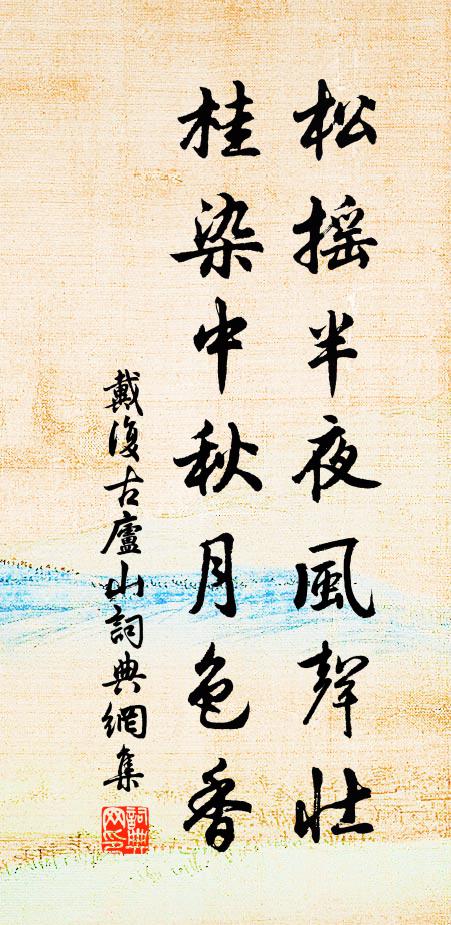 松摇半夜風聲壮
桂染中秋月色香
戴復古廬山詞典網集
詞典网印